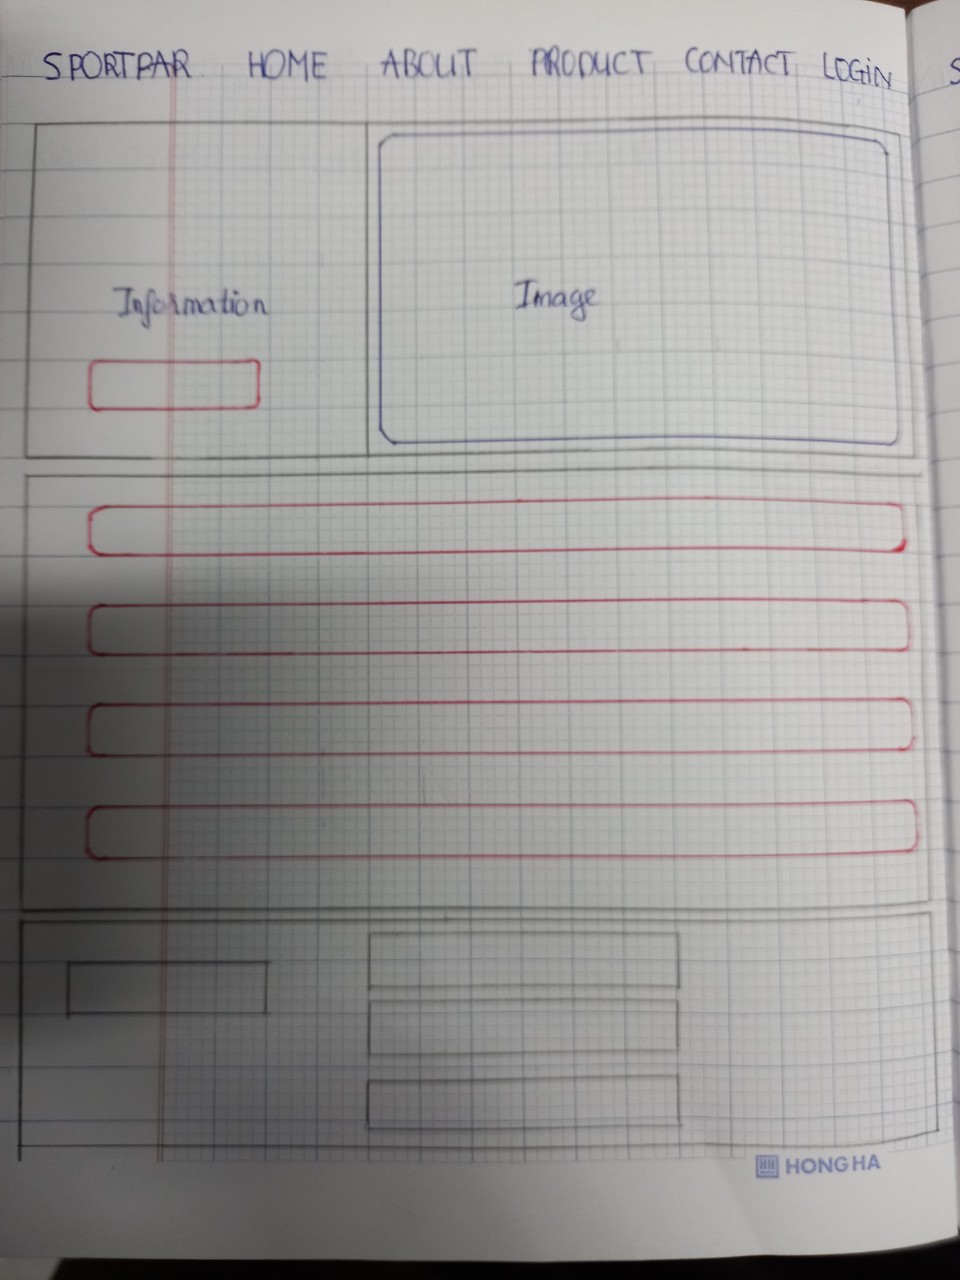 SPORTPAR HOME ABOUT PRODUCT CONTACT LOGiN S
Information
Image
HH HONG HA